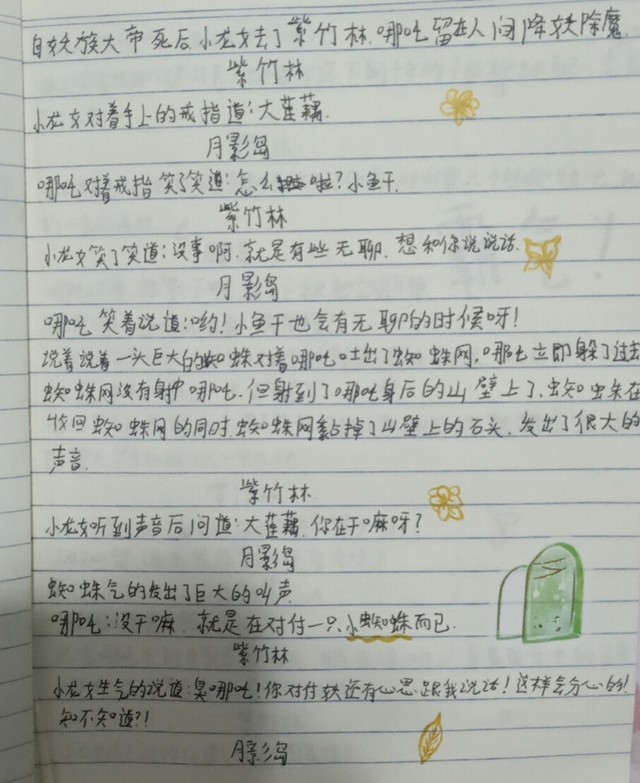 自妖族大帝死后小龙女去了紫竹林.哪吒留在人间降妖除魔.
紫竹林
小龙女对着手上的戒指道:大莲藕.
月影岛
哪吒对着戒指笑了笑道:怎么啦?小鱼干.
紫竹林
小龙女笑了笑道:没事啊.就是有些无聊.想和你说说话.
月影岛
哪吒笑着说道:哟!小鱼干也会有无聊的时候呀!
说着说着一头巨大的蜘蛛对着哪吒吐出了蜘蛛网,哪吒立即躲了过去
蜘蛛网没有射中哪吒.但射到了哪吒身后的山壁上了.蜘蛛在
收回蜘蛛网的同时.蜘蛛网黏掉了山壁上的石头.发出了很大的
声音.
紫竹林
小龙女听到声音后问道:大莲藕.你在干嘛呀?
月影岛
蜘蛛气的发出了巨大的叫声
哪吒:没干嘛.就是在对付一只小蜘蛛而已.
紫竹林
小龙女生气的说道:臭哪吒!你对付妖还有心思跟我说话!这样会分心的!
知不知道?!
月影岛